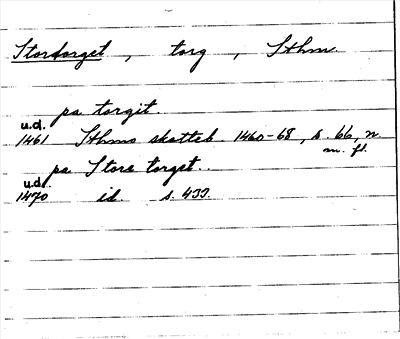 Stortorget, torg, Sthm.
pa torgit.
u.d.
1461 Sthms skatteb. 1460-68, s. 66, n.
m. fl.
pa Stora torget..
u.d.
1470 id. s.